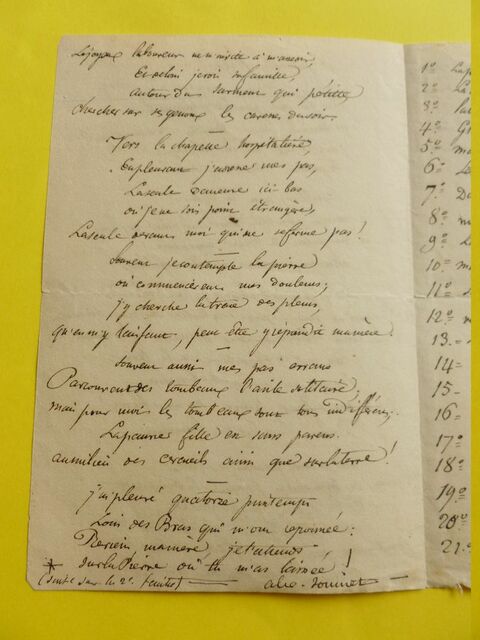 Le joyeux laboureur ne m'invite à m'asseoir,
Et de loin je vois sa famille,
autour Du sarment qui pétille
chercher sur ses genoux les caresses du soir.
Vers la chapelle hospitalière,
En pleurant j'adresse mes pas,
La seule demeure ici bas
où je ne sois point étrangère,
La seule devant moi qui ne se ferme pas!
Souvent je contemple la pierre
où commencèrent mes douleurs;
j'y cherche la trace des pleurs,
qu'en m'y laissant, peut être y répandit ma mère.
Souvent aussi mes pas errans
Parcourent des tombeaux l'asile solitaire,
mais pour moi les tombeaux sont tous indifférens.
La pauvre fille est sans parens
au milieu des cercueils ainsi que sur la terre!
j'ai pleuré quatorze printemps
Loin des Bras qui m'ont repoussée:
Reviens, ma mère, je t'attends
* sur la Pierre où tu m'as laissée!
(suite sur le 2e feuillet) — alex. Soumet —
1°
2° La
3°
4°
5°
6°
7°
8°
9°
10°
11°
12°
13-
14-
15-
16-
17°
18°
19°
20°
21°